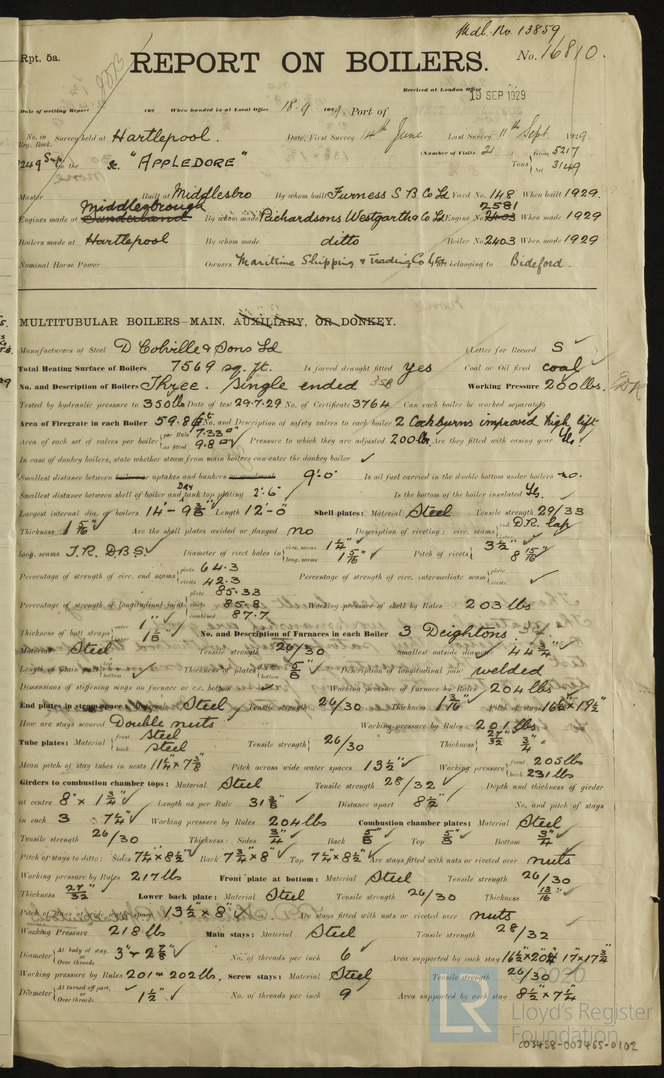 Mdl. No 13859
Rpt. 5a.
REPORT ON BOILERS.
No. 16810.
Received at London Office 19 SEP 1929
Date of writing Report 192 When handed in at Local Office 18·9 1929. Port of
No. in Reg. Book. Survey held at Hartlepool. Date, First Survey 14th June Last Survey 11th Sept 1929
(Number of Visits 21
249 on the Sc. "APPLEDORE" Tons 5217 3149
Master Built at Middlesbro By whom built Furness S B Co Ld Yard No. 148 When built 1929.
Engines made at Middlesbrough Sunderland By whom made Richardsons Westgarth & Co Ld Engine No. 2581 2403 When made 1929
Boilers made at Hartlepool By whom made ditto Boiler No. 2403 When made 1929
Nominal Horse Power Owners Maritime Shipping & Trading Co Ltd Port belonging to Bideford
MULTITUBULAR BOILERS—MAIN, AUXILIARY, OR DONKEY.
Manufacturers of Steel D Colville & Sons Ld (Letter for Record S
Total Heating Surface of Boilers 7569 sq. ft. Is forced draught fitted yes Coal or Oil fired coal
No. and Description of Boilers Three. Single ended Working Pressure 200 lbs.
Tested by hydraulic pressure to 350 lbs Date of test 29.7.29 No. of Certificate 3764 Can each boiler be worked separately
Area of Firegrate in each Boiler 59.8 No. and Description of safety valves to each boiler 2 Cockburns improved high lift
Area of each set of valves per boiler per Rule 7.33 as fitted 9.80 Pressure to which they are adjusted 200 lb. Are they fitted with easing gear Yes.
In case of donkey boilers, state whether steam from main boilers can enter the donkey boiler
Smallest distance between boilers or uptakes and bunkers or woodwork 9'-0" Is oil fuel carried in the double bottom under boilers no.
Smallest distance between shell of boiler and Dry tank top plating 2'-6" Is the bottom of the boiler insulated Yes.
Largest internal dia. of boilers 14'-9 3/8" Length 12'-0" Shell plates: Material Steel Tensile strength 29/33
Thickness 1 5/16" Are the shell plates welded or flanged no Description of riveting: circ. seams end D.R. Lap
long. seams T.R. D.B.S. Diameter of rivet holes in circ. seams 1 1/4" long. seams 1 5/16" Pitch of rivets 3 1/2" 8 15/16"
Percentage of strength of circ. end seams plate 64.3 rivets 42.3 Percentage of strength of circ. intermediate seam plate rivets
Percentage of strength of longitudinal joint plate 85.33 rivets 85.8 combined 87.7 Working pressure of shell by Rules 203 lbs
Thickness of butt straps outer 1" inner 1 1/8" No. and Description of Furnaces in each Boiler 3 Deightons.
Material Steel Tensile strength 26/30 Smallest outside diameter 44 3/4"
Length of plain part top bottom Thickness of plates crown bottom 5/8" Description of longitudinal joint welded
Dimensions of stiffening rings on furnace or c.c. bottom Working pressure of furnace by Rules 204 lbs
End plates in steam space: Material Steel Tensile strength 26/30 Thickness 1 3/16" Pitch of stays 16 1/2" x 19 1/2"
How are stays secured Double nuts Working pressure by Rules 201 lbs.
Tube plates: Material front Steel back steel Tensile strength 26/30 Thickness 27/32" 3/4"
Mean pitch of stay tubes in nests 11 1/4" x 7 3/8" Pitch across wide water spaces 13 1/2" Working pressure front 205 lbs back 231 lbs
Girders to combustion chamber tops: Material Steel Tensile strength 28/32 Depth and thickness of girder
at centre 8" x 1 3/4" Length as per Rule 31 3/8" Distance apart 8 1/2" No. and pitch of stays
in each 3 7 1/4" Working pressure by Rules 204 lbs Combustion chamber plates: Material Steel
Tensile strength 26/30 Thickness: Sides 3/4" Back 5/8" Top 5/8" Bottom 3/4"
Pitch of stays to ditto: Sides 7 1/4" x 8 1/2" Back 7 3/4" x 8" Top 7 1/4" x 8 1/2" Are stays fitted with nuts or riveted over nuts
Working pressure by Rules 217 lbs Front plate at bottom: Material Steel Tensile strength 26/30
Thickness 27/32" Lower back plate: Material Steel Tensile strength 26/30 Thickness 13/16"
Pitch of stays at wide water space 13 1/2" x 8" Are stays fitted with nuts or riveted over nuts
Working Pressure 218 lbs Main stays: Material Steel Tensile strength 28/32
Diameter At body of stay, or Over threads 3" & 2 7/8" No. of threads per inch 6 Area supported by each stay 17" x 17 3/4"
Working pressure by Rules 201 & 202 lbs. Screw stays: Material Steel Tensile strength 26/30
Diameter At turned off part, or Over threads 1 1/2" No. of threads per inch 9 Area supported by each stay 8 1/2" x 7 1/4"
© 2020
LR
Lloyd's Register
Foundation
003458-003465-0102